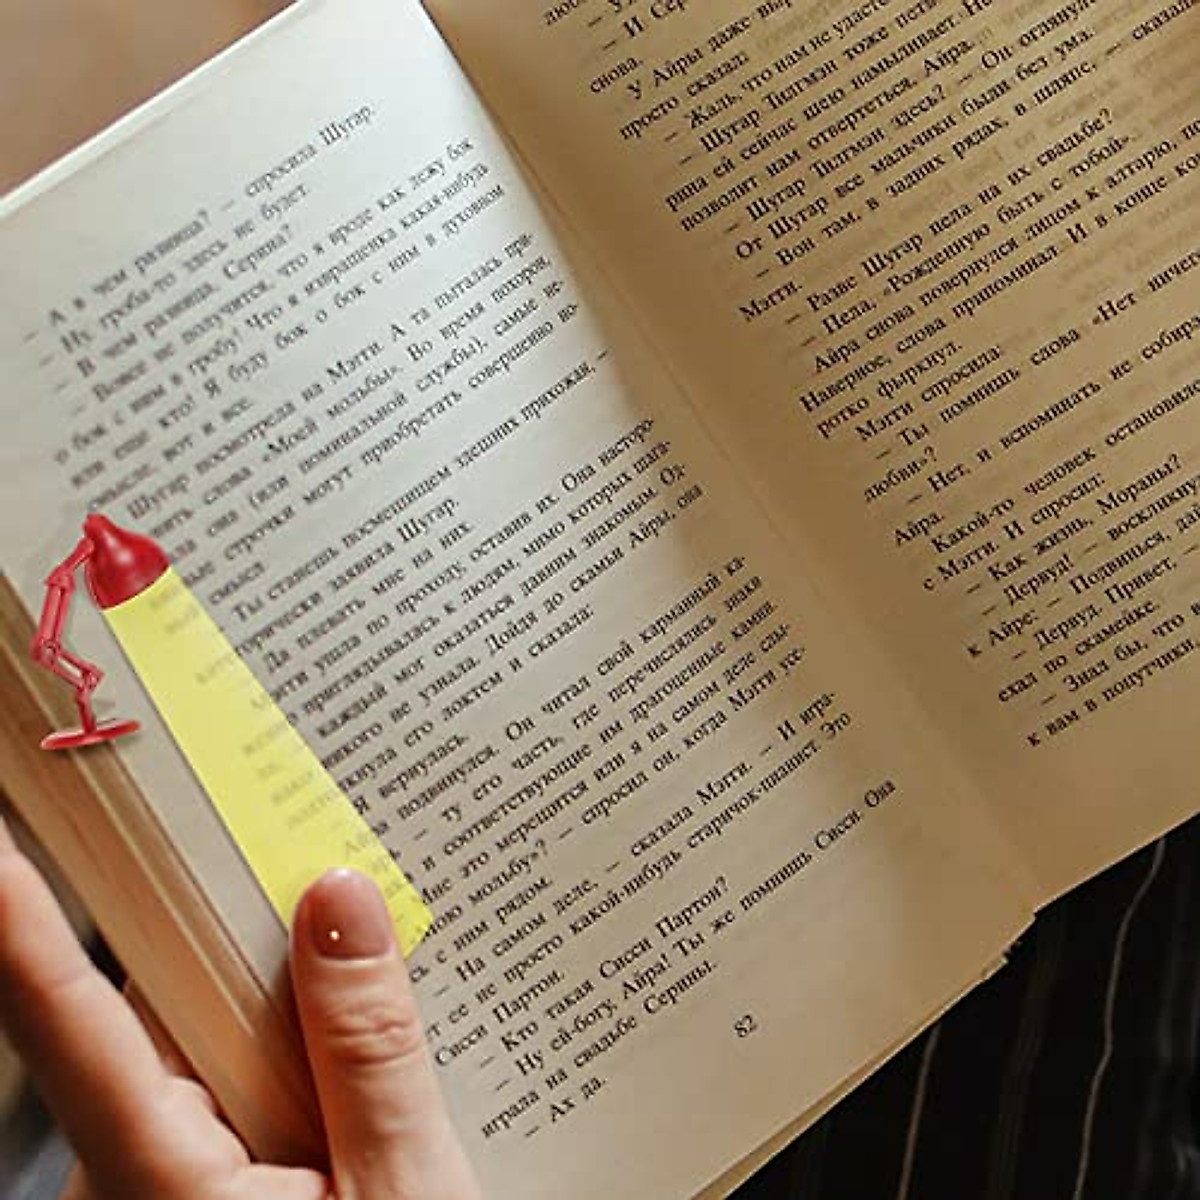 — А в чем разница? — спросила Шугар.
— Ну, гроба-то здесь не будет.
— В чем разница, Серина?
— Вовсе не получится, что я вроде как лежу бок
о бок с ним в гробу! Что я извращенка какая-нибудь
или еще кто! Я буду бок о бок с ним в духовном
смысле, вот и все.
Шугар посмотрела на Мэгги. А та пыталась при-
слова «Моей мольбы». Во время похорон,
она (или поминальной службы), самые не-
строчки могут приобретать совершенно но-
смысл.
— Ты станешь посмешищем здешних прихожан, —
категорически заявила Шугар.
— Да плевать мне на них.
ушла по проходу, оставив их. Она насторо-
приглядывалась к людям, мимо которых шага-
каждый мог оказаться давним знакомым. Од-
никого не узнала. Дойдя до скамьи Айры, она
его локтем и сказала:
— Я вернулась.
подвинулся. Он читал свой карманный ка-
— ту его часть, где перечислялись знаки
и соответствующие им драгоценные камни.
— Мне это мерещится или я на самом деле слы-
мольбу»? — спросил он, когда Мэгги усе-
с ним рядом.
— На самом деле, — сказала Мэгги. — И игра-
ет ее не просто какой-нибудь старичок-пианист. Это
Сисси Партон.
— Кто такая Сисси Партон?
— Ну ей-богу, Айра! Ты же помнишь Сисси. Она
играла на свадьбе Серины.
— Ах да.
82
— И
снова.
У Айры даже
просто сказал:
— Жаль, что нам не удастся
— Шугар Тилгмэн тоже
рина ей сейчас шею намыливает.
позволит нам отвертеться, Айра.
— Шугар Тилгмэн здесь? — Он оглянулся
От Шугар все мальчики были без ума.
— Вон там, в задних рядах, в шляпе, — сказала
Мэгги.
— Разве Шугар пела на их свадьбе?
— Пела, «Рожденную быть с тобой».
Айра снова повернулся лицом к алтарю,
Наверное, слова припоминал. И в конце
ротко фыркнул.
Мэгги спросила:
— Ты помнишь слова «Нет ничего
любви»?
— Нет, и вспоминать не
Айра.
Какой-то человек остановился
с Мэгги. И спросил:
— Как жизнь, Мораны?
— Дервуд! — воскликнул
к Айре: — Подвинься, дай
— Дервуд. Привет, —
ехал по скамейке.
— Знал бы, что
к вам в попутчики,